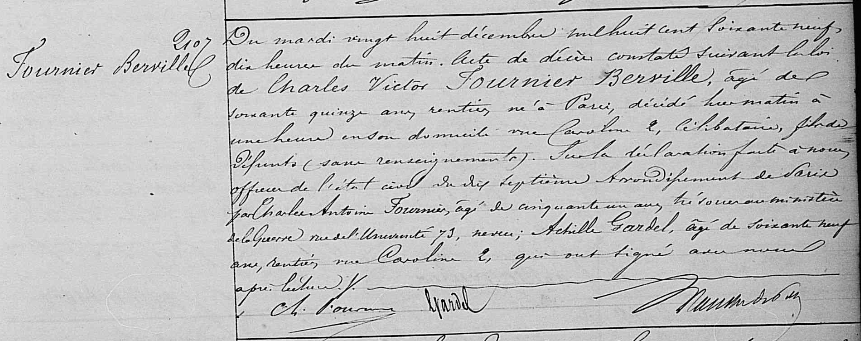 2107
Fournier Berville
Du mardi vingt huit décembre mil huit cent soixante neuf,
dix heures du matin. Acte de décès constaté suivant la loi
de Charles Victor Fournier Berville, âgé de
soixante quinze ans, rentier, né à Paris, décédé hier matin à
une heure en son domicile rue Caroline 2, Célibataire, fils de
défunts (sans renseignements). Sur la déclaration faite à nous,
officier de l'état civil du dix septième Arrondissement de Paris
par Charles Antoine Fournier, âgé de cinquante un ans, trésorier au ministère
de la Guerre rue de l'Université 73, neveu; Achille Gardel, âgé de soixante neuf
ans, rentier, rue Caroline 2, qui ont signé avec nous
après lecture./.
Ch. Fournier Gardel